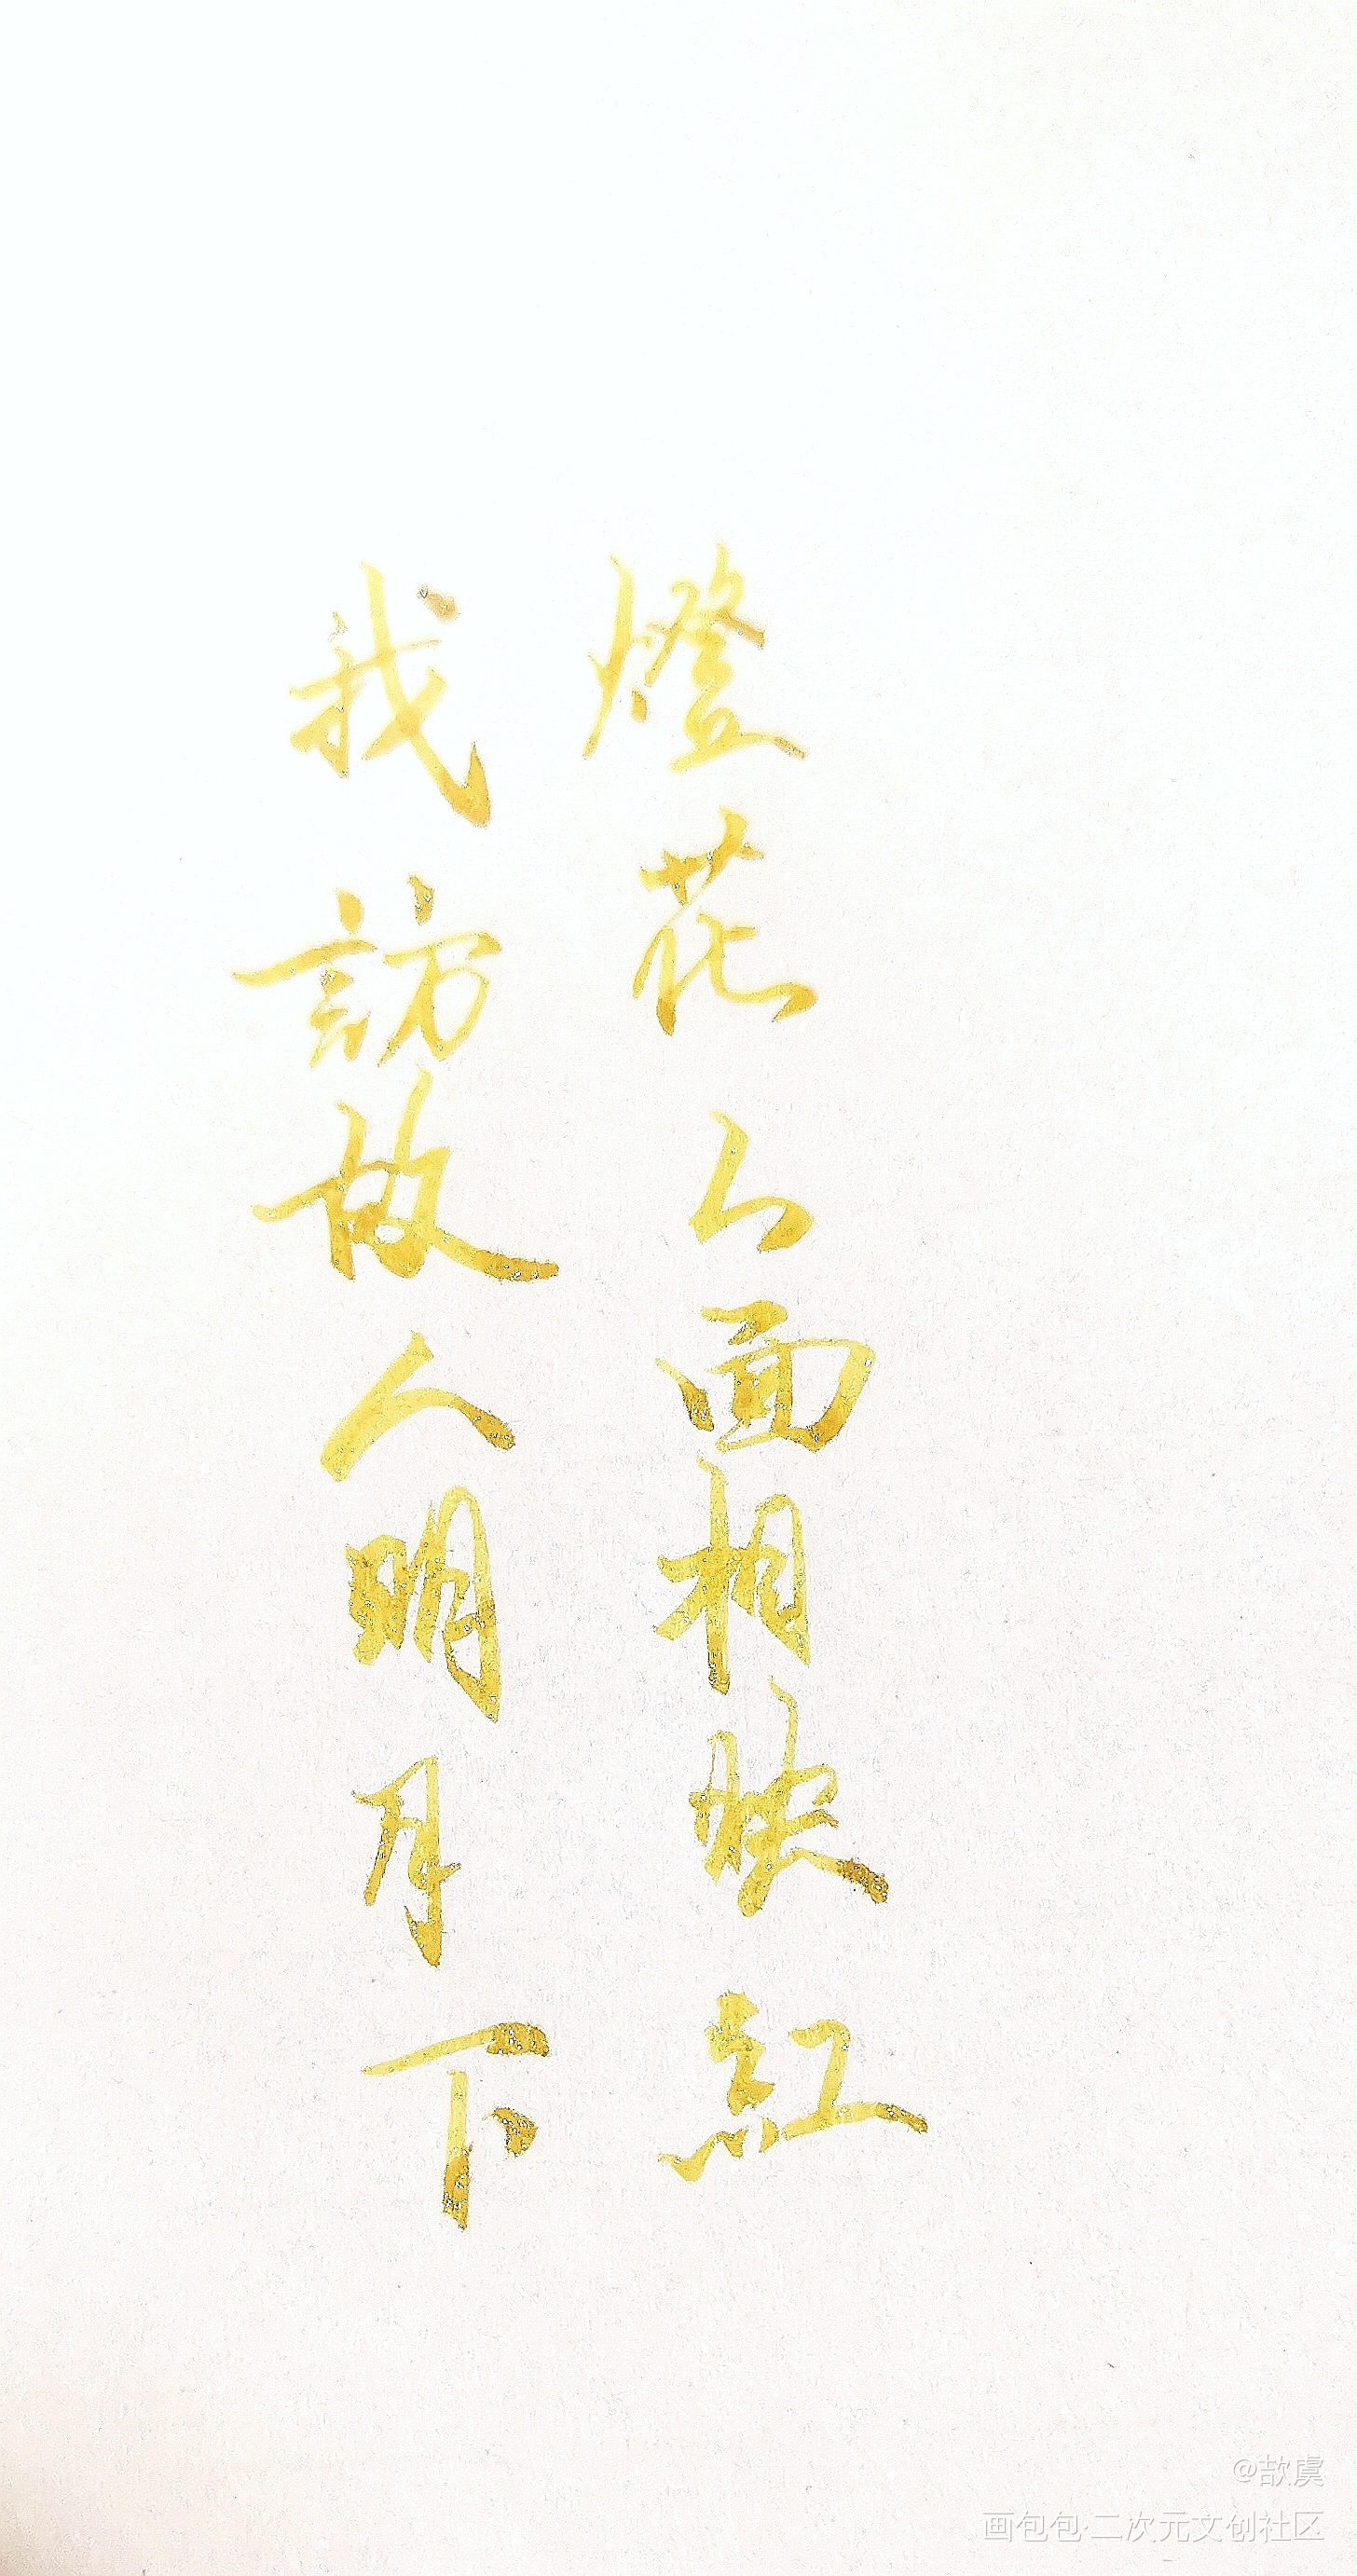 燈花人面相映紅
我訪故人明月下
@歆虞
画包包·二次元文创社区